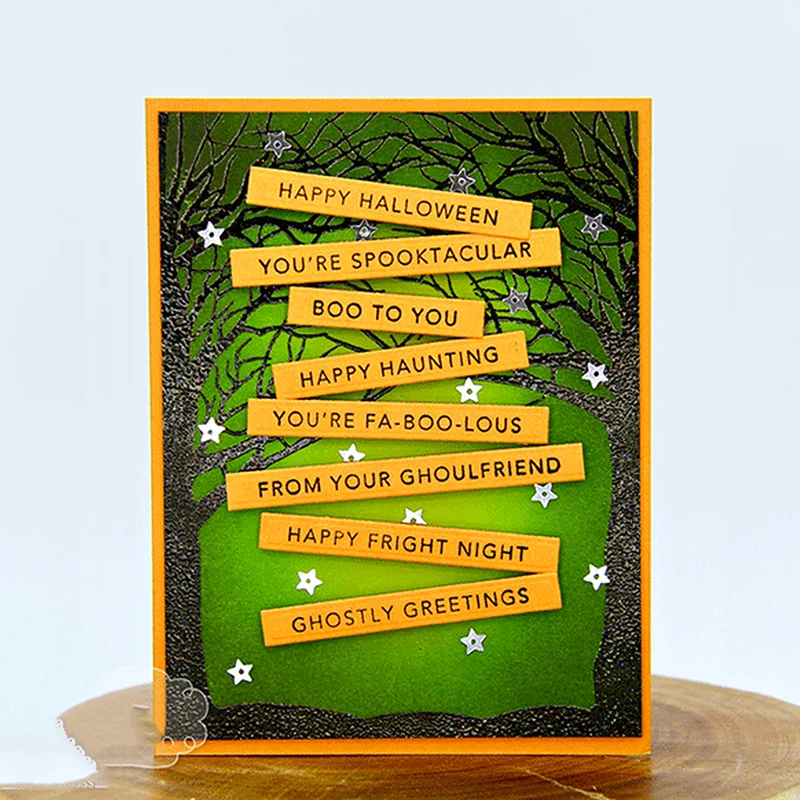 HAPPY HALLOWEEN
YOU'RE SPOOKTACULAR
BOO TO YOU
HAPPY HAUNTING
YOU'RE FA-BOO-LOUS
FROM YOUR GHOULFRIEND
HAPPY FRIGHT NIGHT
GHOSTLY GREETINGS